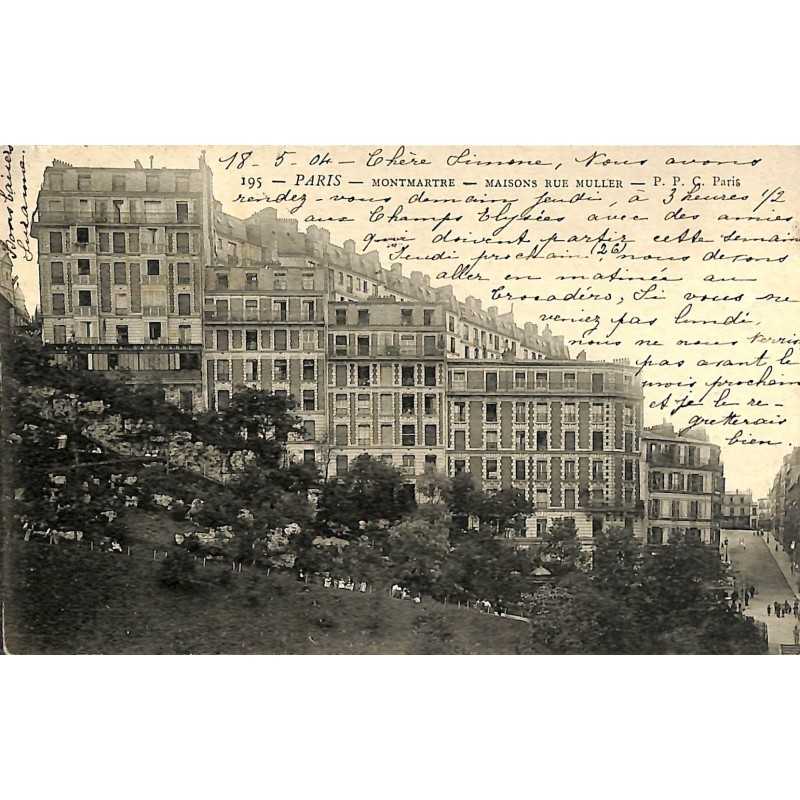 18-5-04 - Chère Simone, Nous avons
195 - PARIS - MONTMARTRE - MAISONS RUE MULLER - P. P. C. Paris
rendez-vous demain jeudi, à 3 heures 1/2
aux Champs Elysées avec des amies
qui doivent partir cette semaine
Jeudi prochain (26) nous devons
aller en matinée au
Trocadéro, Si vous ne
veniez pas lundi,
nous ne nous verrions
pas avant le
mois prochain
et je le re-
gretterais
bien.
Bons baisers
Suzanne.